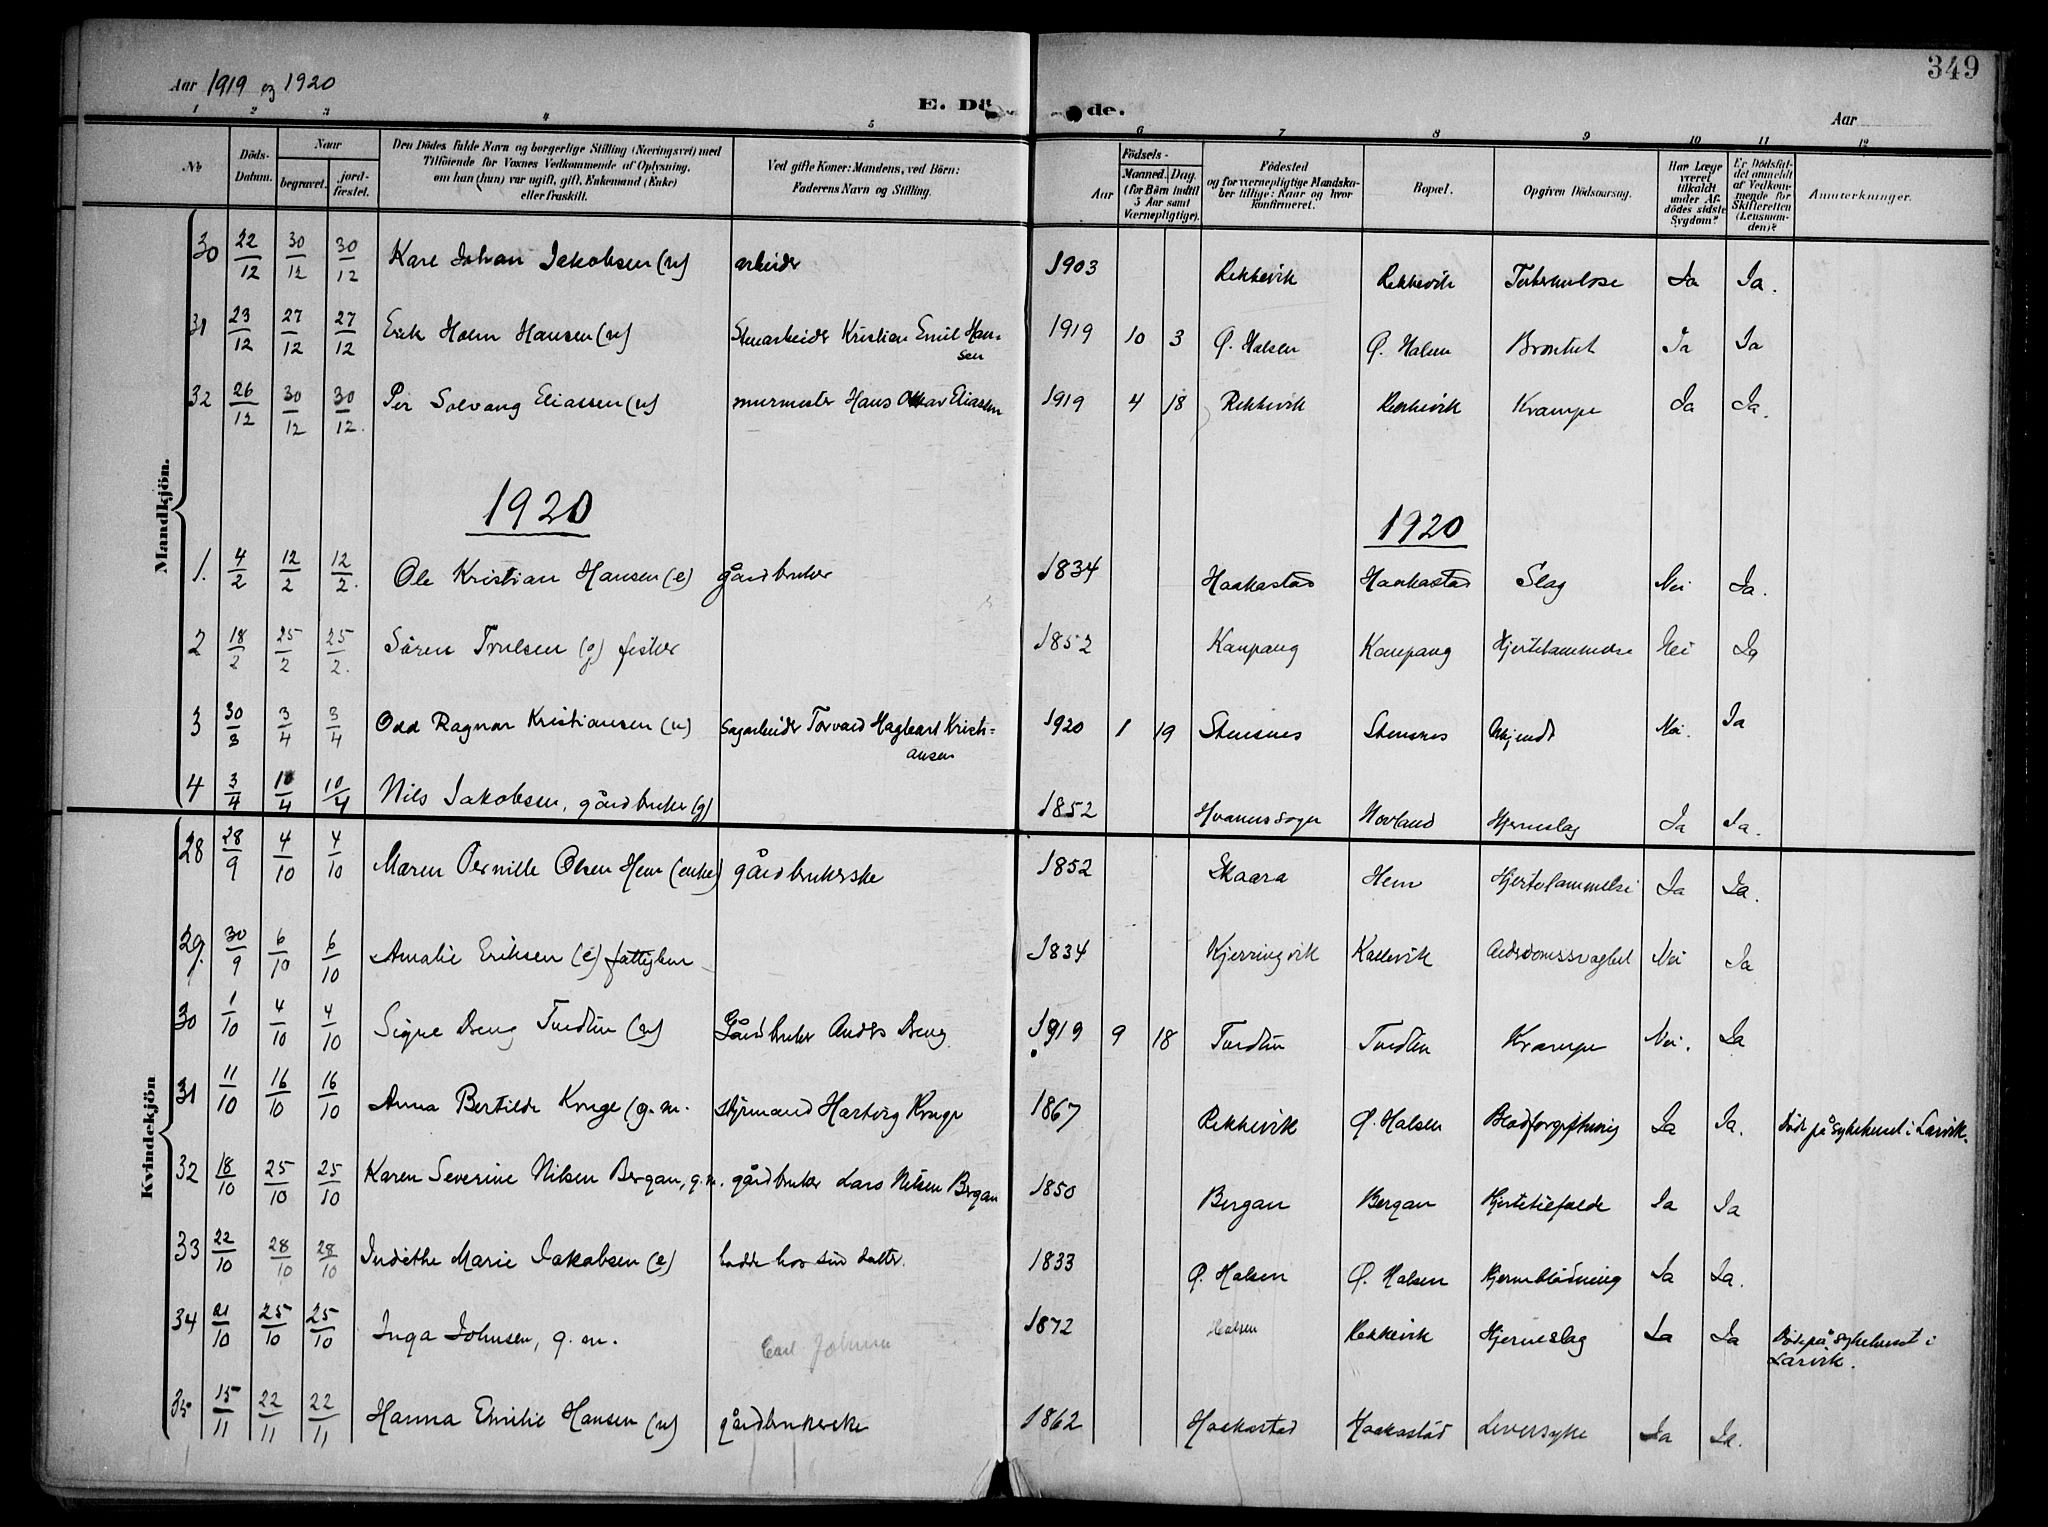 349
Aar 1919 og 1920
E. Dö de.
Aar
1 2 3 4 5 6 7 8 9 10 11 12
No
Döds-Datum.
Naar
begravet.
jord-fæstet.
Den Dödes fulde Navn og borgerlige Stilling (Næringsvei) med
Tilföiende for Voxnes Vedkommende af Oplysning,
om han (hun) var ugift, gift, Enkemand (Enke)
eller fraskilt.
Ved gifte Koner: Mandens, ved Börn:
Faderens Navn og Stilling.
Födsels-
Aar
Maaned. Dag.
(for Börn indtil
5 Aar samt
Værnepligtige).
Födested
og for værnepligtige Mandska-
ber tillige: Naar og hvor
konfirmeret.
Bopæl.
Opgiven Dödsaarsag.
Har Læge
været
tilkaldt
under Af-
dödes sidste
Sygdom?
Er Dödsfal-
det anmeldt
af Vedkom-
mende for
Skifteretten
(Lensman-
den)?
Anmerkninger.
Mandkjön.
30 22/12 30/12 30/12 Karl Johan Jakobsen (u) arbeider 1903 Rekkevik Rekkevik Tuberkulose Ja Ja.
31 23/12 27/12 27/12 Erik Holm Hansen (u) Stenarbeider Kristian Emil Han-
sen 1919 10 3 Ø. Halsen Ø. Halsen Bronkit Ja Ja
32 26/12 30/12 30/12. Per Solvang Eliassen (u) murmester Hans Oskar Eliassen 1919 4 18 Rekkevik Rekkevik Krampe Ja Ja.
1920 1920
1. 4/2 12/2 12/2. Ole Kristian Hansen (e) gårdbruker 1834 Haakastad Haakastad Slag Nei Ja.
2 18/2 25/2 25/2. Sören Trulsen (g) fisker 1852 Kaupang Kaupang Hjertelammelse Nei Ja
3 30/3 3/4 3/4 Odd Ragnar Kristiansen (u) Sagarbeider Torvald Hagbart Kristi=
ansen 1920 1 19 Stensnes Stensnes Ukjendt Nei. Ja
4 3/4 10/4 10/4 Nils Jakobsen, gårdbruker (g) 1852 Hvarnes sogn Novland Hjerneslag Ja Ja.
Kvindekjön
28 28/9 4/10 4/10 Maren Pernille Olsen Hem (enke) gårdbrukerske 1852 Skaara Hem Hjertelammelse Ja Ja.
29. 30/9 6/10 6/10 Amalie Eriksen (e) fattiglem 1834 Kjerringvik Kallevik Alderdomssvaghet Nei Ja
30 1/10 4/10 4/10 Signe Breng (u) Gårdbruker Anders 1919 9 18 Krampe Nei. Ja
31 11/10 16/10 16/10 Anna Bertilde Kruge (g.m. styrmand Hartvig Kruge 1867 Rekkevik Ø. Halsen Blodforgiftning Ja Ja. Döde på sykehuset i Larvik.
32 18/10 25/10 25/10 Karen Severine Nilsen Bergan, g.m. gårdbruker Lars Nilsen Bergan 1850 Bergan Bergan Hjertetilfælde Ja Ja
33 22/10 28/10 28/10 Indiethe Marie Jakobsen (e) bodde hos sin datter. 1833 Ø. Halsen Ø. Halsen Hjerneblödning Ja Ja.
34 21/10 25/10 25/10 Inga Johnsen, g.m. Carl Johnsen 1872 Halsen Rekkevik Hjerneslag Ja Ja Döde på sykehuset i
Larvik.
35 15/11 22/11 22/11 Hanna Emilie Hansen (u) gårdbrukerske 1862 Haakastad Haakastad Leversyke Ja Ja.